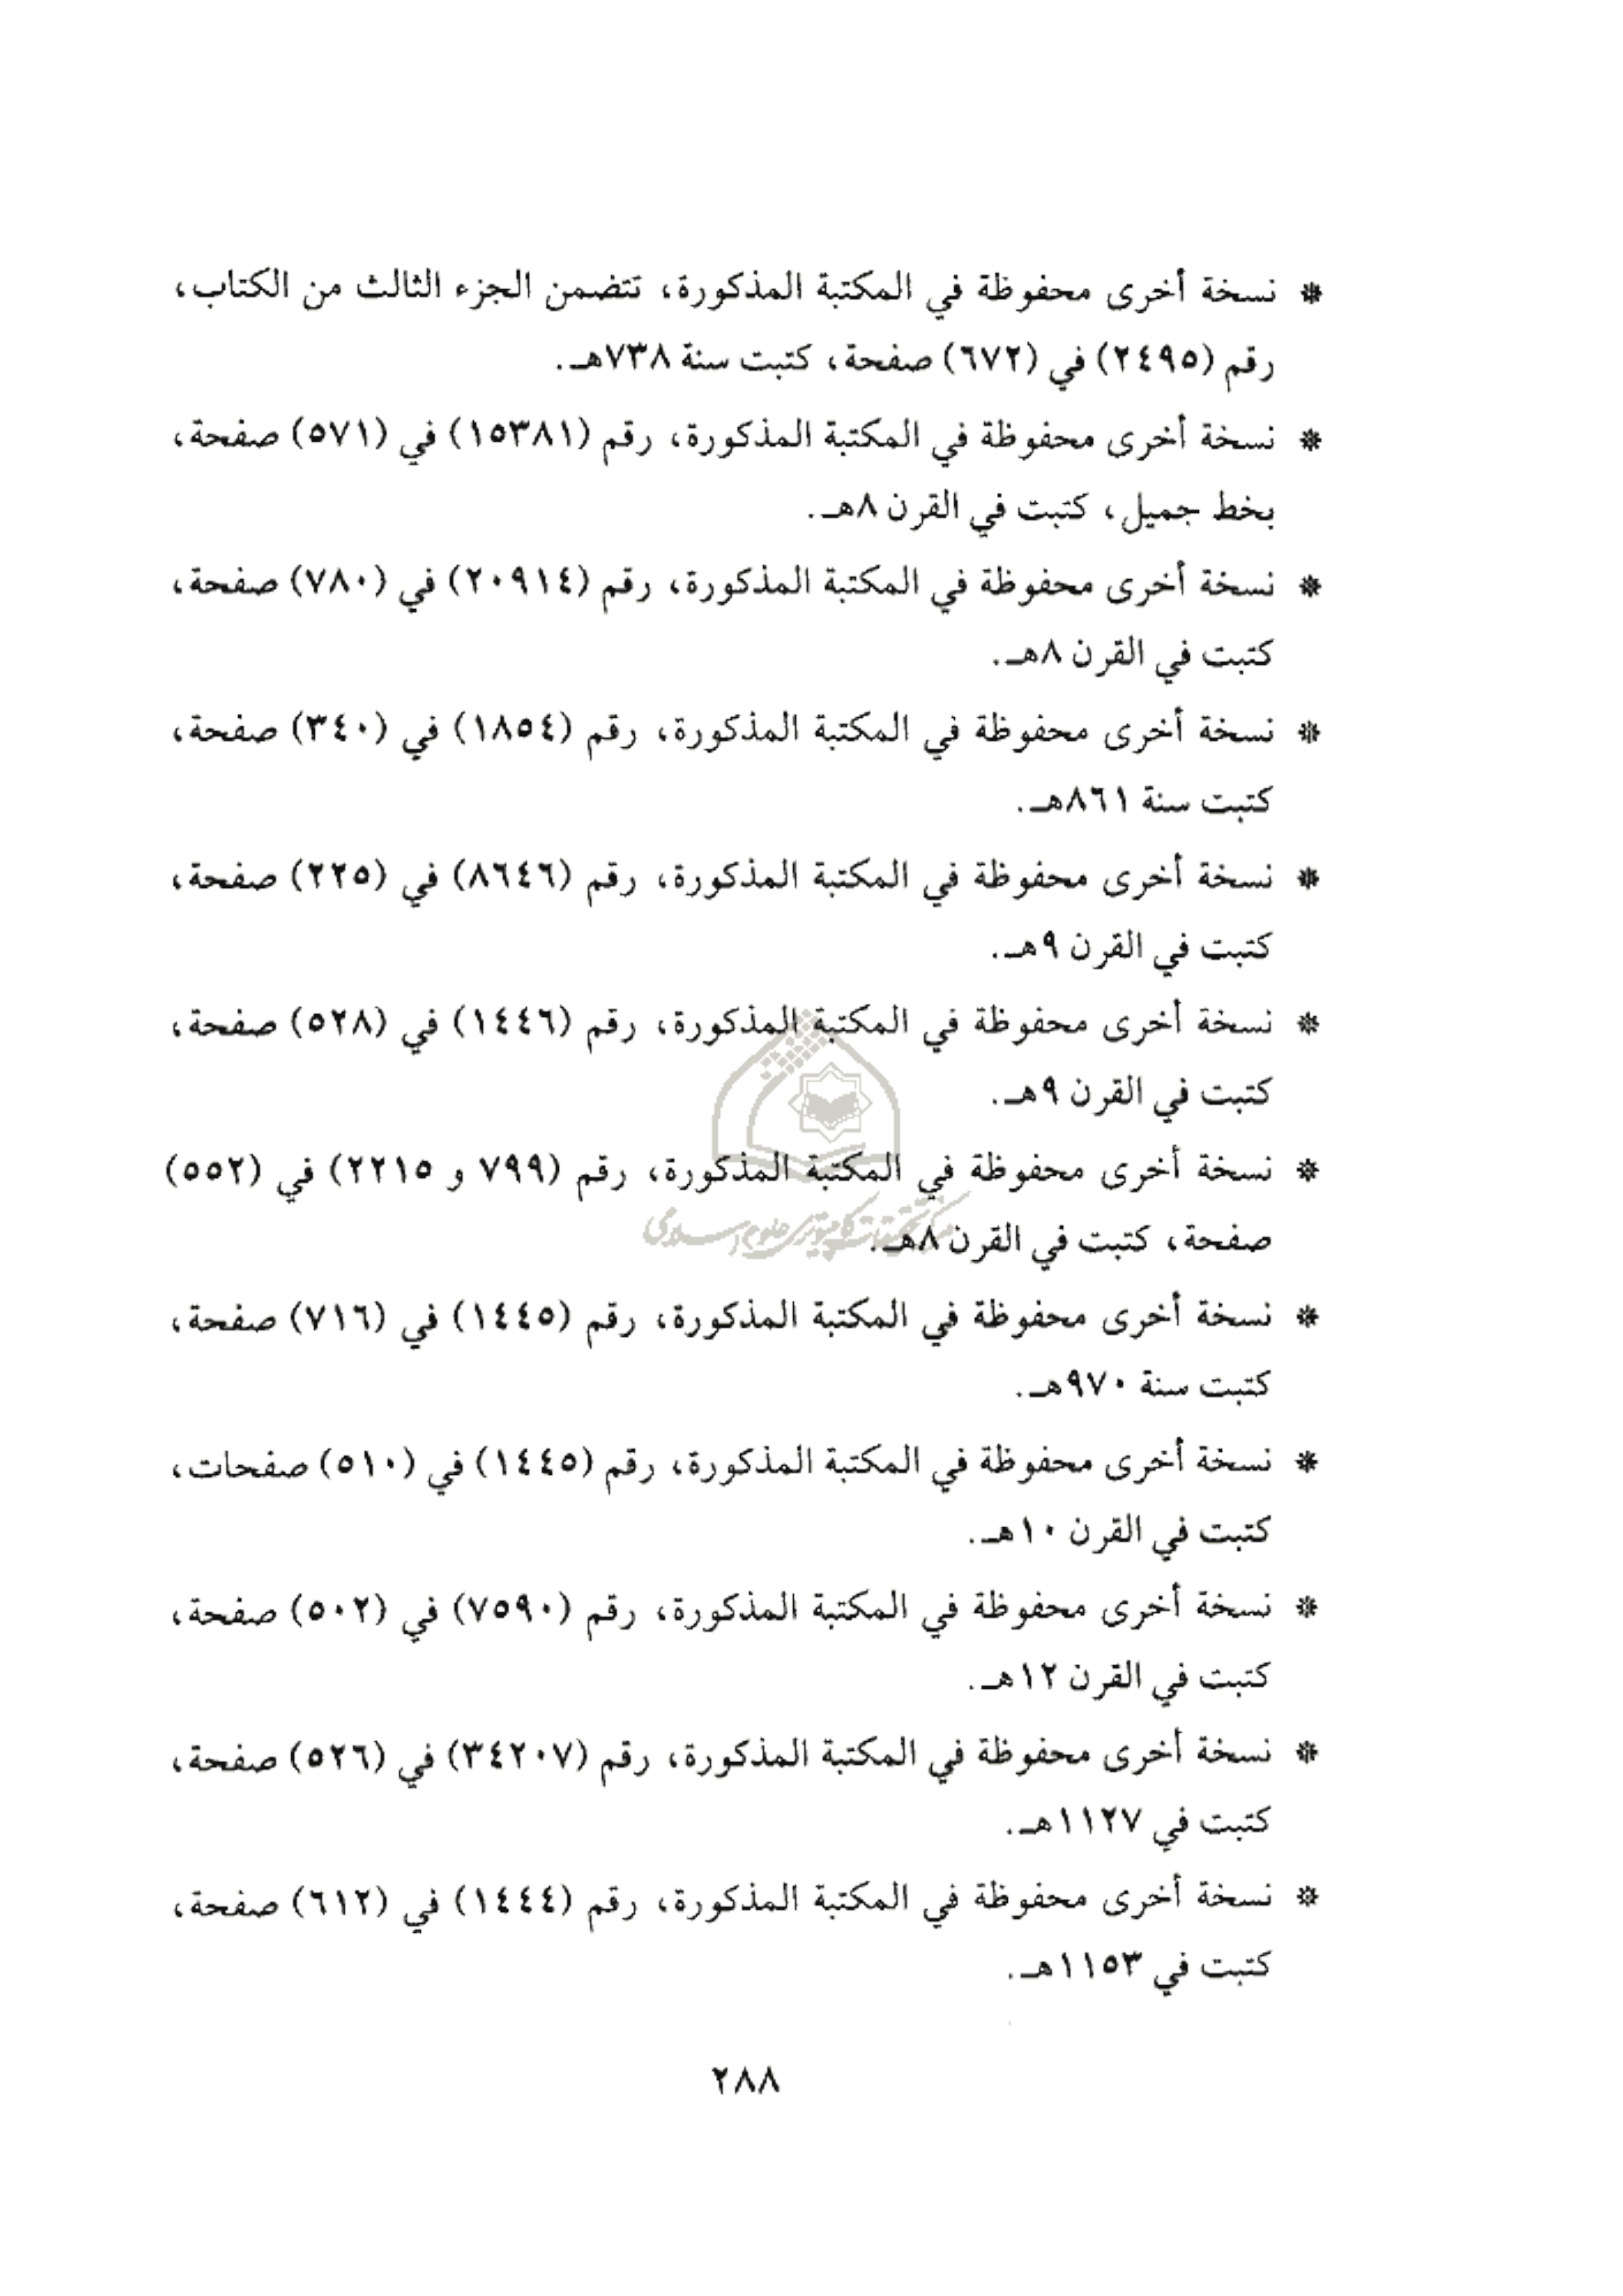 * نسخة أخرى محفوظة في المكتبة المذكورة، تتضمن الجزء الثالث من الكتاب،
رقم (٢٤٩٥) في (٦٧٢) صفحة، كتبت سنة ٧٣٨هـ.
* نسخة أخرى محفوظة في المكتبة المذكورة، رقم (١٥٣٨١) في (٥٧١) صفحة،
بخط جميل، كتبت في القرن ٨هـ.
* نسخة أخرى محفوظة في المكتبة المذكورة، رقم (٢٠٩١٤) في (٧٨٠) صفحة،
كتبت في القرن ٨هـ.
* نسخة أخرى محفوظة في المكتبة المذكورة، رقم (١٨٥٤) في (٣٤٠) صفحة،
كتبت سنة ٨٦١هـ.
* نسخة أخرى محفوظة في المكتبة المذكورة، رقم (٨٦٤٦) في (٢٢٥) صفحة،
كتبت في القرن ٩هـ.
* نسخة أخرى محفوظة في المكتبة المذكورة، رقم (١٤٤٦) في (٥٢٨) صفحة،
كتبت في القرن ٩هـ.
* نسخة أخرى محفوظة في المكتبة المذكورة، رقم (٧٩٩ و ٢٢١٥) في (٥٥٢)
صفحة، كتبت في القرن ٨هـ.
* نسخة أخرى محفوظة في المكتبة المذكورة، رقم (١٤٤٥) في (٧١٦) صفحة،
كتبت سنة ٩٧٠هـ.
* نسخة أخرى محفوظة في المكتبة المذكورة، رقم (١٤٤٥) في (٥١٠) صفحات،
كتبت في القرن ١٠هـ.
* نسخة أخرى محفوظة في المكتبة المذكورة، رقم (٧٥٩٠) في (٥٠٢) صفحة،
كتبت في القرن ١٢هـ.
* نسخة أخرى محفوظة في المكتبة المذكورة، رقم (٣٤٢٠٧) في (٥٢٦) صفحة،
كتبت في ١١٢٧هـ.
* نسخة أخرى محفوظة في المكتبة المذكورة، رقم (١٤٤٤) في (٦١٢) صفحة،
كتبت في ١١٥٣هـ.
٢٨٨